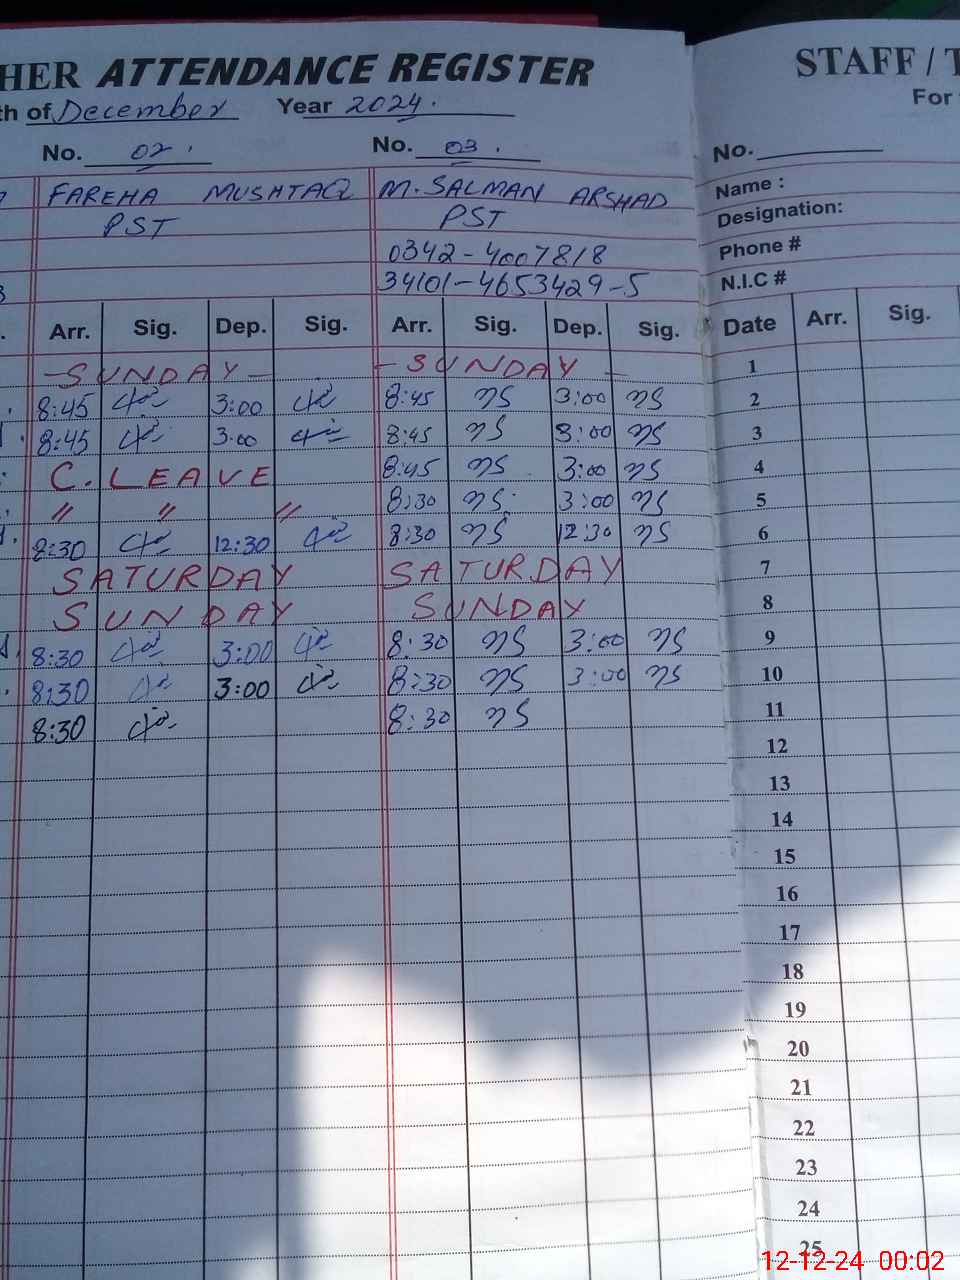 HER ATTENDANCE REGISTER
th of December Year 2024.
No. 02. No. 03.
FAREHA MUSHTAQ M. SALMAN ARSHAD
PST PST
0342-4007818
34101-4653429-5
Arr. Sig. Dep. Sig. Arr. Sig. Dep. Sig.
-SUNDAY- -SUNDAY-
8:45 3:00 8:45 3:00
8:45 3:00 8:45 3:00
C. LEAVE 8:45 3:00
" " " 8:30 3:00
8:30 12:30 8:30 12:30
SATURDAY SATURDAY
SUNDAY SUNDAY
8:30 3:00 8:30 3:00
8:30 3:00 8:30 3:00
8:30 8:30
STAFF / T
For
No.
Name :
Designation:
Phone #
N.I.C #
Date Arr. Sig.
1
2
3
4
5
6
7
8
9
10
11
12
13
14
15
16
17
18
19
20
21
22
23
24
25
12-12-24 00:02